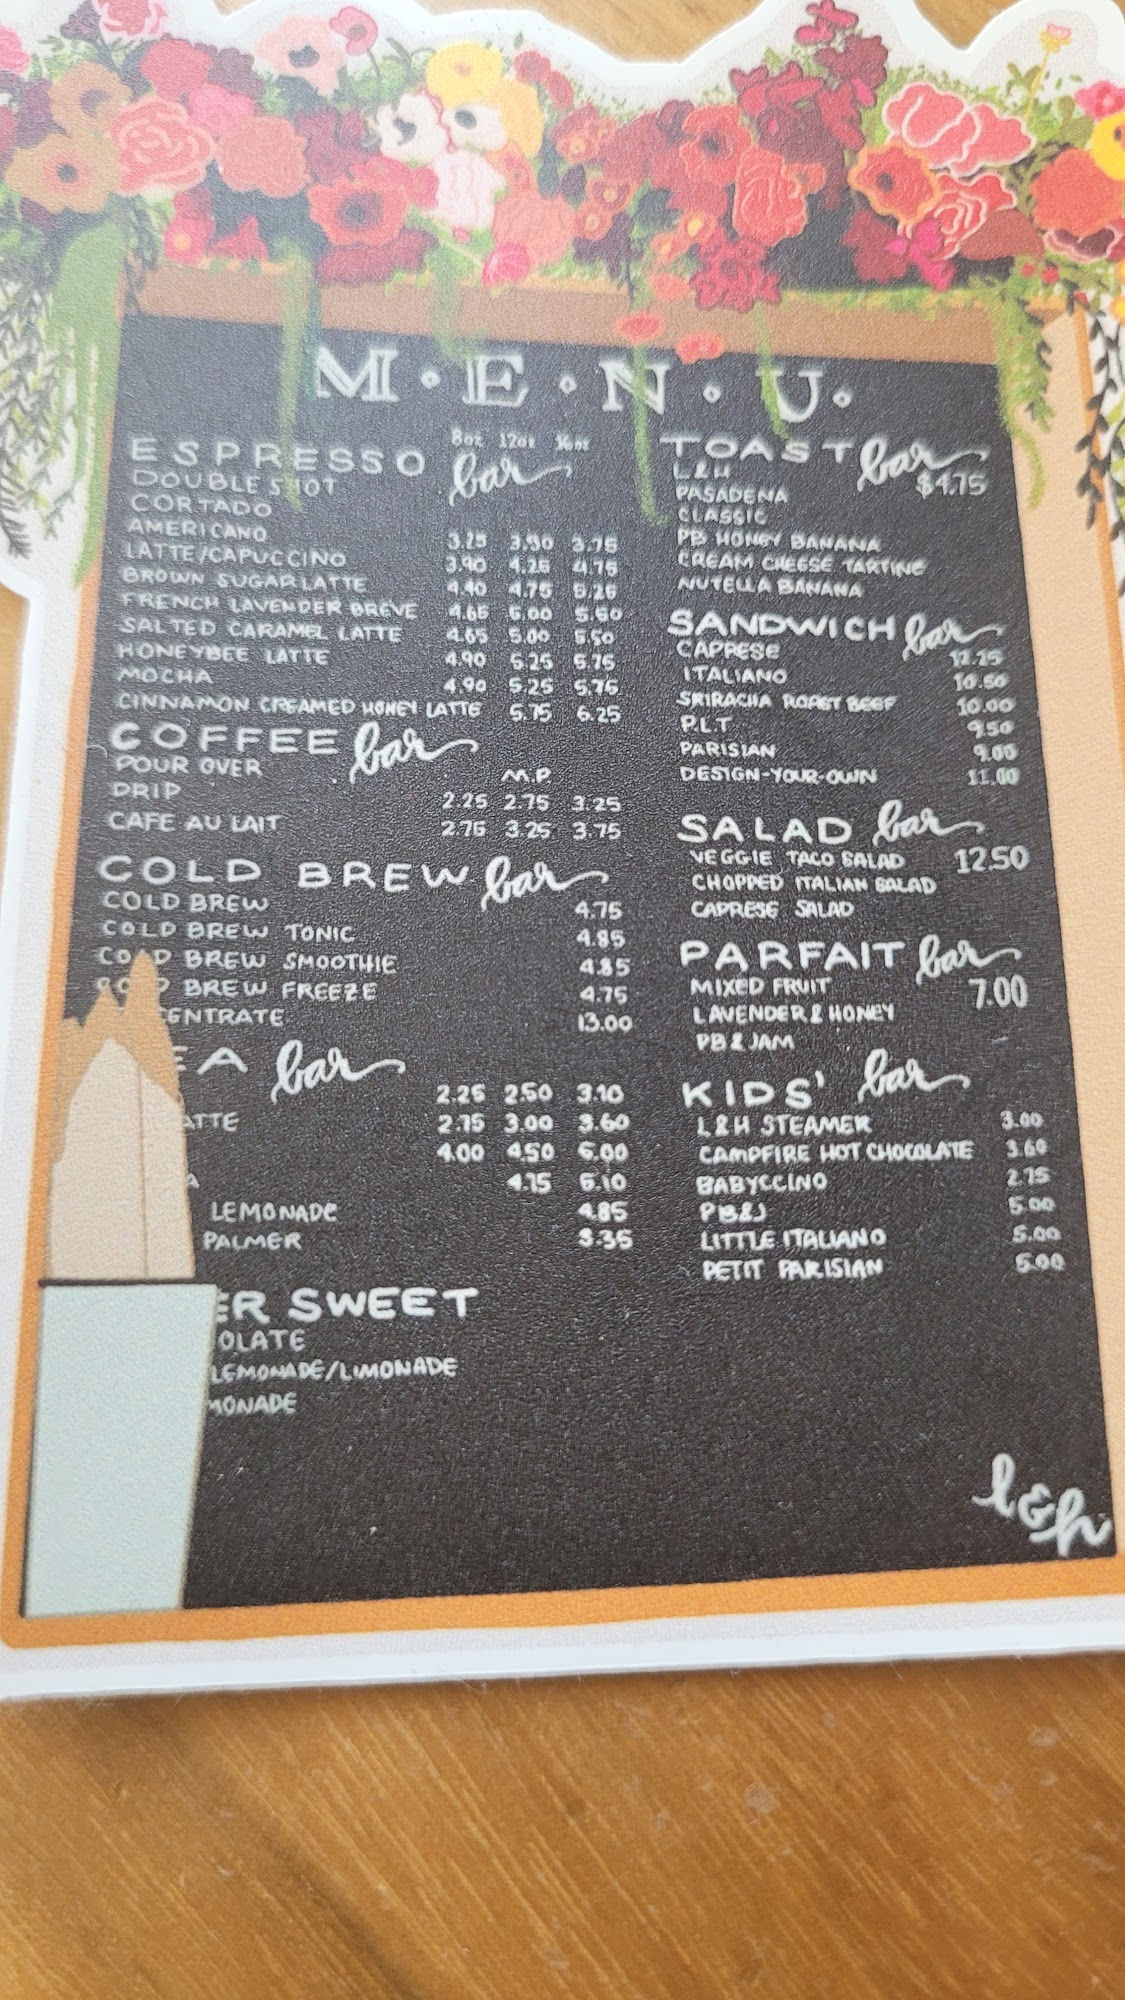 M·E·N·U·
8oz 12oz 16oz
ESPRESSO bar
DOUBLE SHOT
CORTADO
AMERICANO 3.25 3.50 3.75
LATTE/CAPUCCINO 3.90 4.25 4.75
BROWN SUGAR LATTE 4.40 4.75 5.25
FRENCH LAVENDER BREVE 4.65 5.00 5.50
SALTED CARAMEL LATTE 4.65 5.00 5.50
HONEYBEE LATTE 4.90 5.25 5.75
MOCHA 4.90 5.25 5.75
CINNAMON CREAMED HONEY LATTE 5.75 6.25
COFFEE bar
POUR OVER M.P
DRIP 2.25 2.75 3.25
CAFE AU LAIT 2.75 3.25 3.75
COLD BREW bar
COLD BREW 4.75
COLD BREW TONIC 4.85
BREW SMOOTHIE 4.85
BREW FREEZE 4.75
ENTRATE 13.00
EA bar
2.25 2.50 3.10
ATTE 2.75 3.00 3.60
4.00 4.50 5.00
A 4.75 5.10
LEMONADE 4.85
PALMER 3.35
ER SWEET
OLATE
LEMONADE/LIMONADE
MONADE
TOAST bar
L&H $4.75
PASADENA
CLASSIC
PB HONEY BANANA
CREAM CHEESE TARTINE
NUTELLA BANANA
SANDWICH bar
CAPRESE
ITALIANO 10.50
SRIRACHA ROAST BEEF 10.00
P.L.T 9.50
PARISIAN 9.00
DESIGN-YOUR-OWN 11.00
SALAD bar
VEGGIE TACO SALAD 12.50
CHOPPED ITALIAN SALAD
CAPRESE SALAD
PARFAIT bar
MIXED FRUIT 7.00
LAVENDER & HONEY
PB & JAM
KIDS' bar
L&H STEAMER 3.00
CAMPFIRE HOT CHOCOLATE 3.60
BABYCCINO 2.75
PB&J 5.00
LITTLE ITALIANO 5.00
PETIT PARISIAN 5.00
l&h